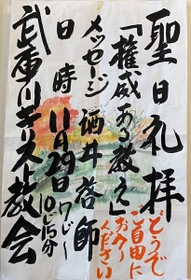 聖日礼拝
どうぞ
ご自由に
お入り
ください
「権威ある教え」
メッセージ 酒井啓師
日時 11月29日(日)
10じ15分
武庫川キリスト教会